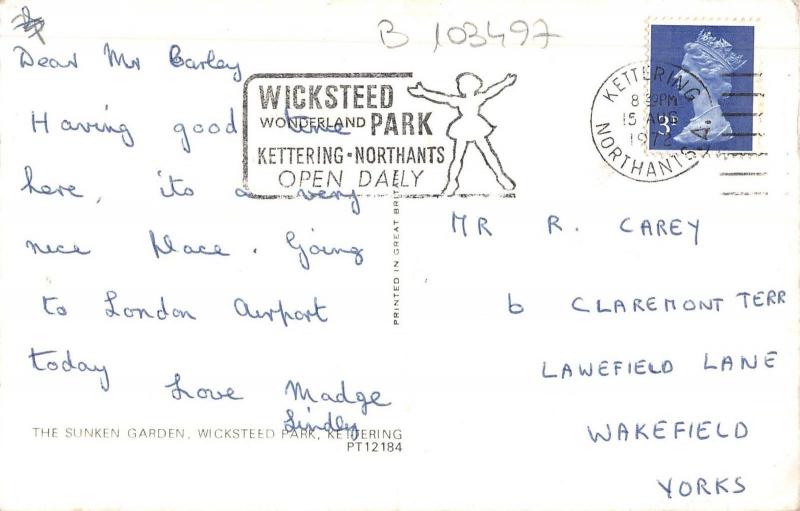 B 103497
Dear Mr Barley
Having good time
here, its a very
nice place. Going
to London Airport
today
Love Madge
Lindley
WICKSTEED
WONDERLAND PARK
KETTERING · NORTHANTS
OPEN DAILY
KETTERING
8 PM
15 AUG
1972
NORTHANTS
3P
PRINTED IN GREAT BRIT
MR R. CAREY
6 CLAREMONT TERR
LAWEFIELD LANE
WAKEFIELD
YORKS
THE SUNKEN GARDEN, WICKSTEED PARK, KETTERING
PT12184